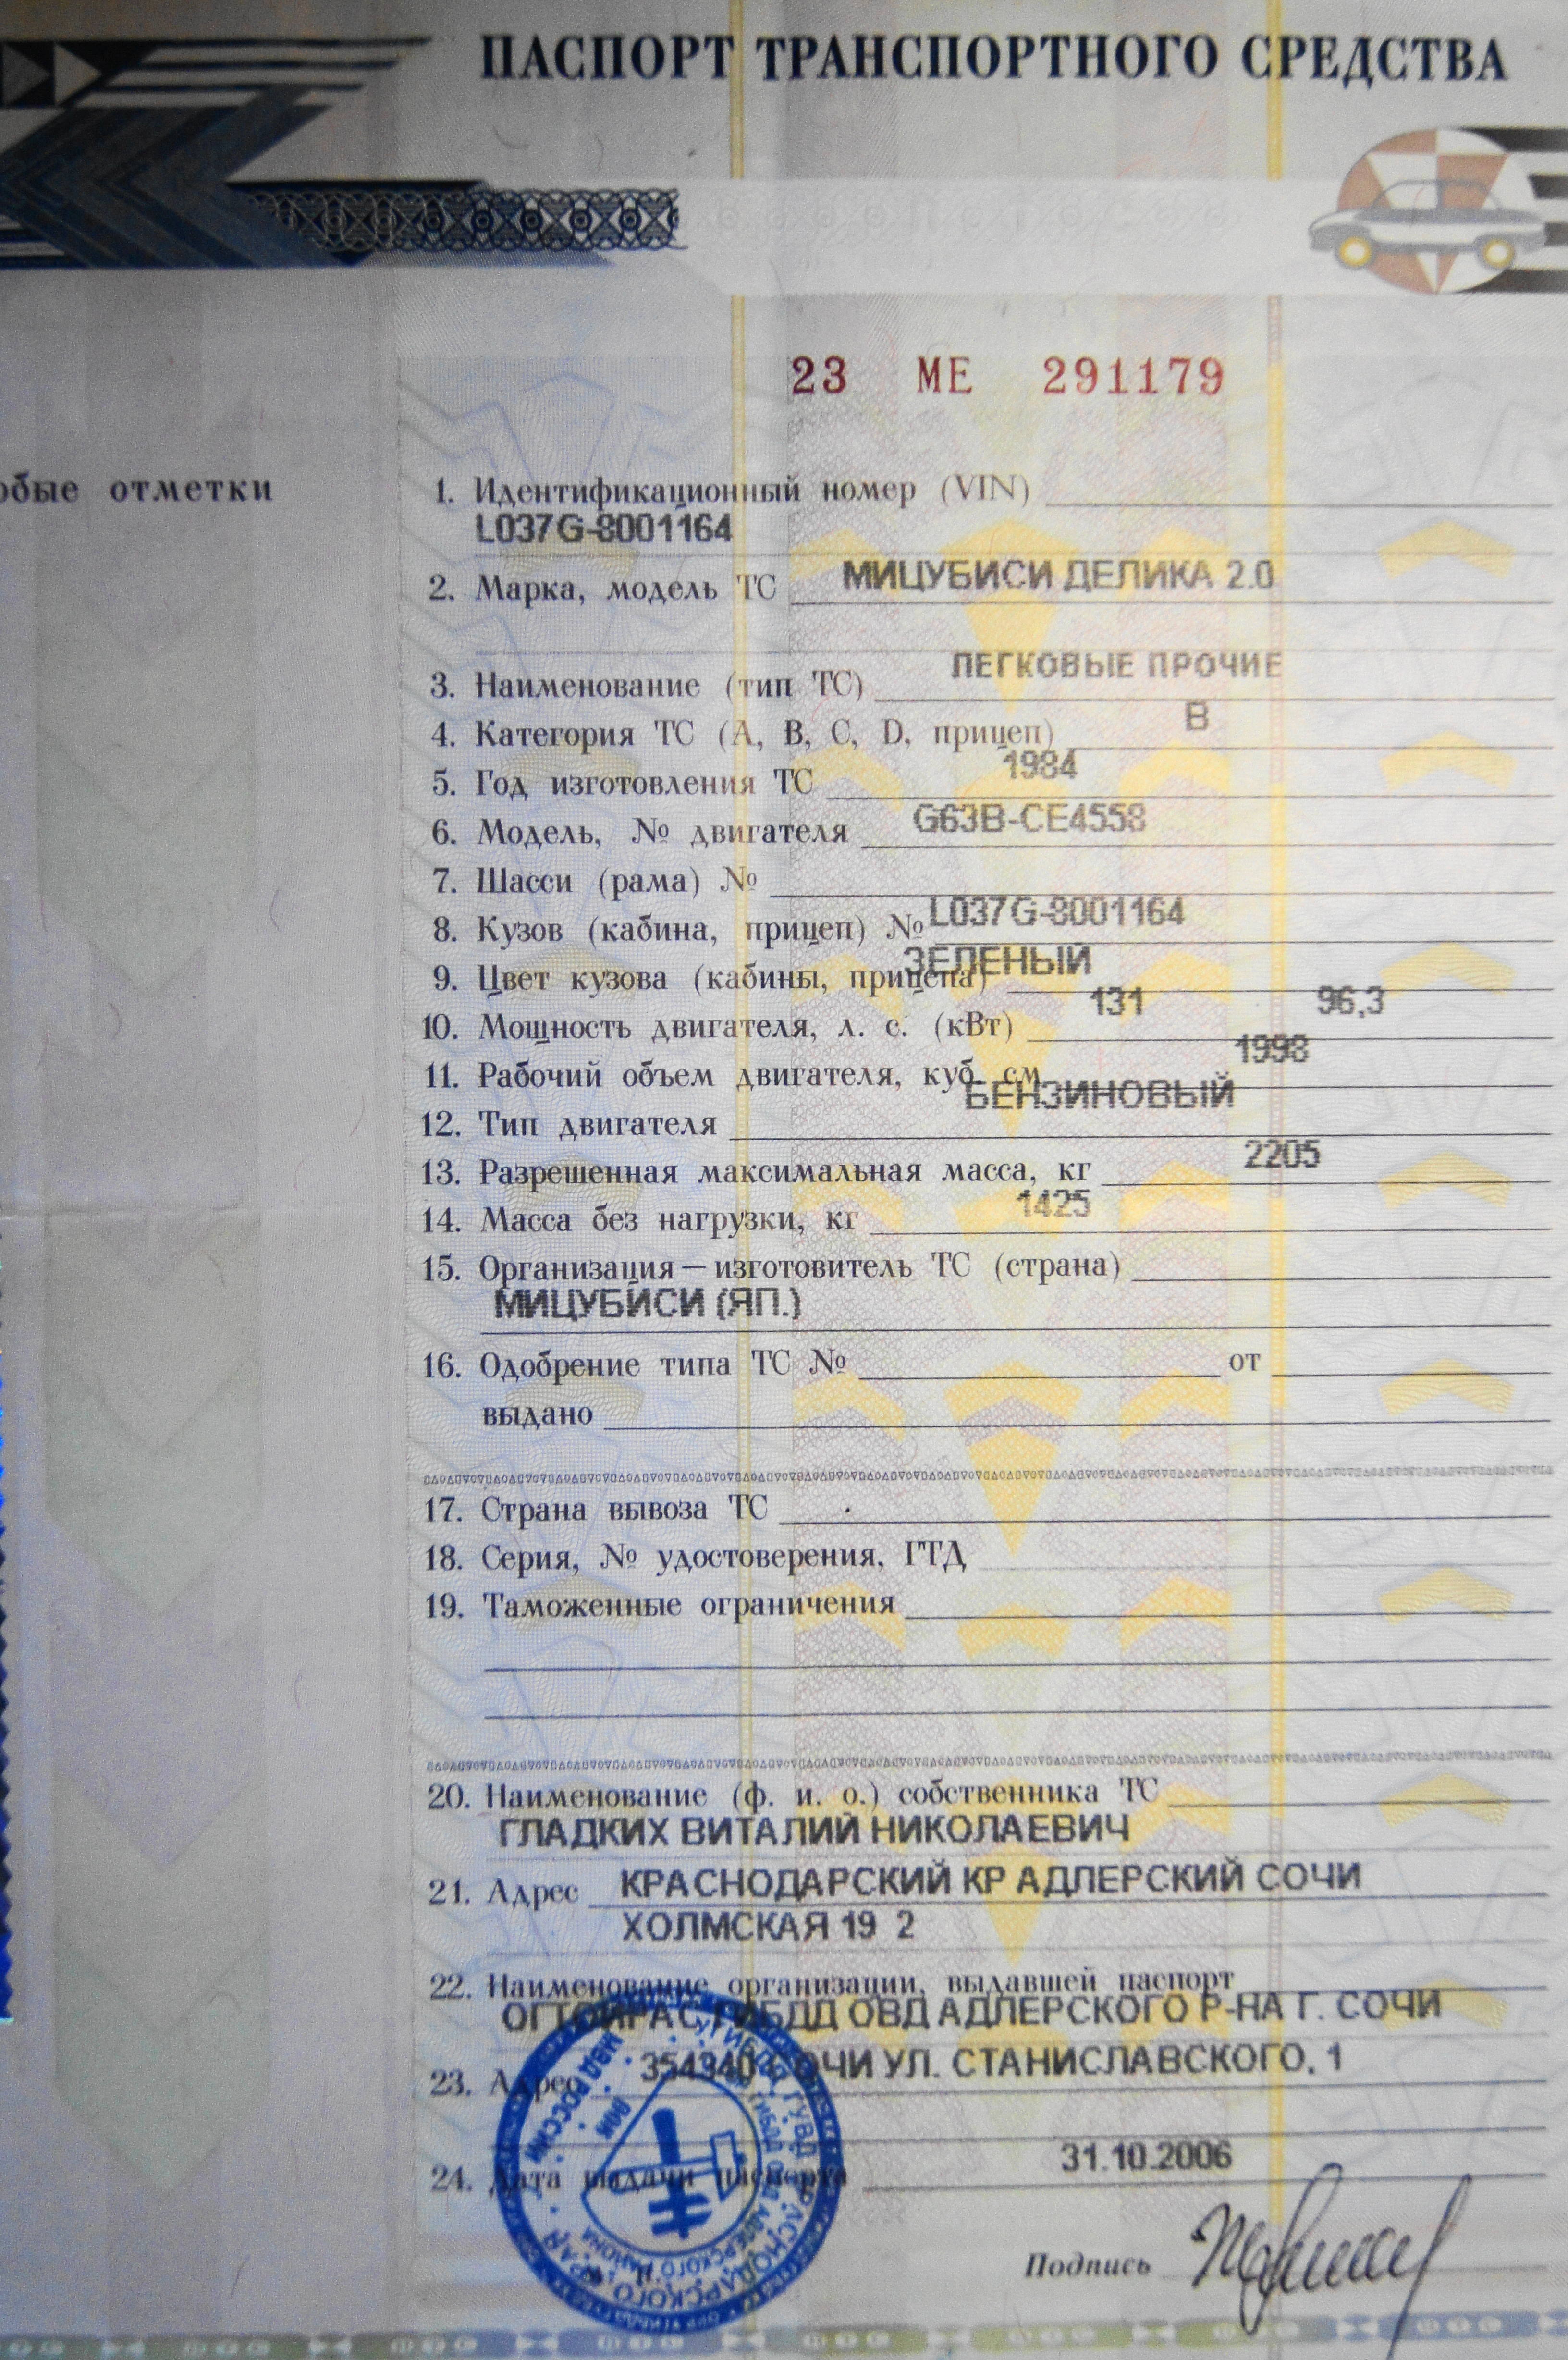 ПАСПОРТ ТРАНСПОРТНОГО СРЕДСТВА
23 МЕ 291179
обые отметки
1. Идентификационный номер (VIN)
L037G-8001164
2. Марка, модель ТС МИЦУБИСИ ДЕЛИКА 2.0
3. Наименование (тип ТС) ЛЕГКОВЫЕ ПРОЧИЕ
4. Категория ТС (А, В, С, D, прицеп) В
5. Год изготовления ТС 1984
6. Модель, № двигателя G63B-CE4558
7. Шасси (рама) №
8. Кузов (кабина, прицеп) № L037G-8001164
9. Цвет кузова (кабины, прицепа) ЗЕЛЕНЫЙ
10. Мощность двигателя, л. с. (кВт) 131 96,3
11. Рабочий объем двигателя, куб. см 1998
12. Тип двигателя БЕНЗИНОВЫЙ
13. Разрешенная максимальная масса, кг 2205
14. Масса без нагрузки, кг 1425
15. Организация — изготовитель ТС (страна)
МИЦУБИСИ (ЯП.)
16. Одобрение типа ТС № от
выдано
17. Страна вывоза ТС
18. Серия, № удостоверения, ГТД
19. Таможенные ограничения
20. Наименование (ф. и. о.) собственника ТС
ГЛАДКИХ ВИТАЛИЙ НИКОЛАЕВИЧ
21. Адрес КРАСНОДАРСКИЙ КР АДЛЕРСКИЙ СОЧИ
ХОЛМСКАЯ 19 2
22. Наименование организации, выдавшей паспорт
ГИБДД ОВД АДЛЕРСКОГО Р-НА Г. СОЧИ
23. Адрес 354340 СОЧИ УЛ. СТАНИСЛАВСКОГО, 1
24. Дата выдачи паспорта 31.10.2006
Подпись